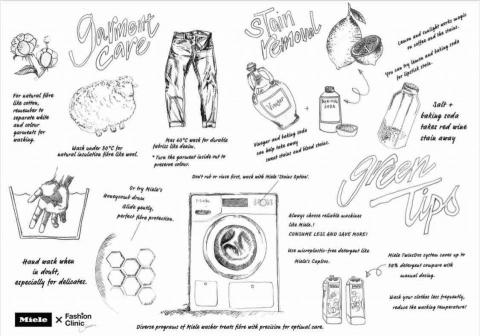 Garment
care
For natural fibre
like cotton,
remember to
separate white
and colour
garments for
washing.
Wash under 30°C for
natural insulation fibre like wool.
Max 60°C wash for durable
fabrics like denim.
* Turn the garment inside out to
preserve colour.
Stain
removal
Lemon and sunlight works magic
on coffee and the stains.
You can try lemon and baking soda
for lipstick stain.
Vinegar
BAKING
SODA
Vinegar and baking soda
can help take away
sweat stains and blood stains.
Salt +
baking soda
takes red wine
stain away
Don't rub or rinse first, work with Miele 'Stains Option'.
Or try Miele's
Honeycomb drum
Glide gently,
perfect fibre protection.
Hand wash when
in doubt,
especially for delicates.
Miele
Green
Tips
Always choose reliable machines
like Miele.!
CONSUME LESS AND SAVE MORE!
Use microplastic-free detergent like
Miele's Caplive.
Miele TwinDos system saves up to
30% detergent compare with
manual dosing.
Wash your clothes less frequently,
reduce the working temperature!
Miele × Fashion
Clinic
Diverse programs of Miele washer treats fibre with precision for optimal care.